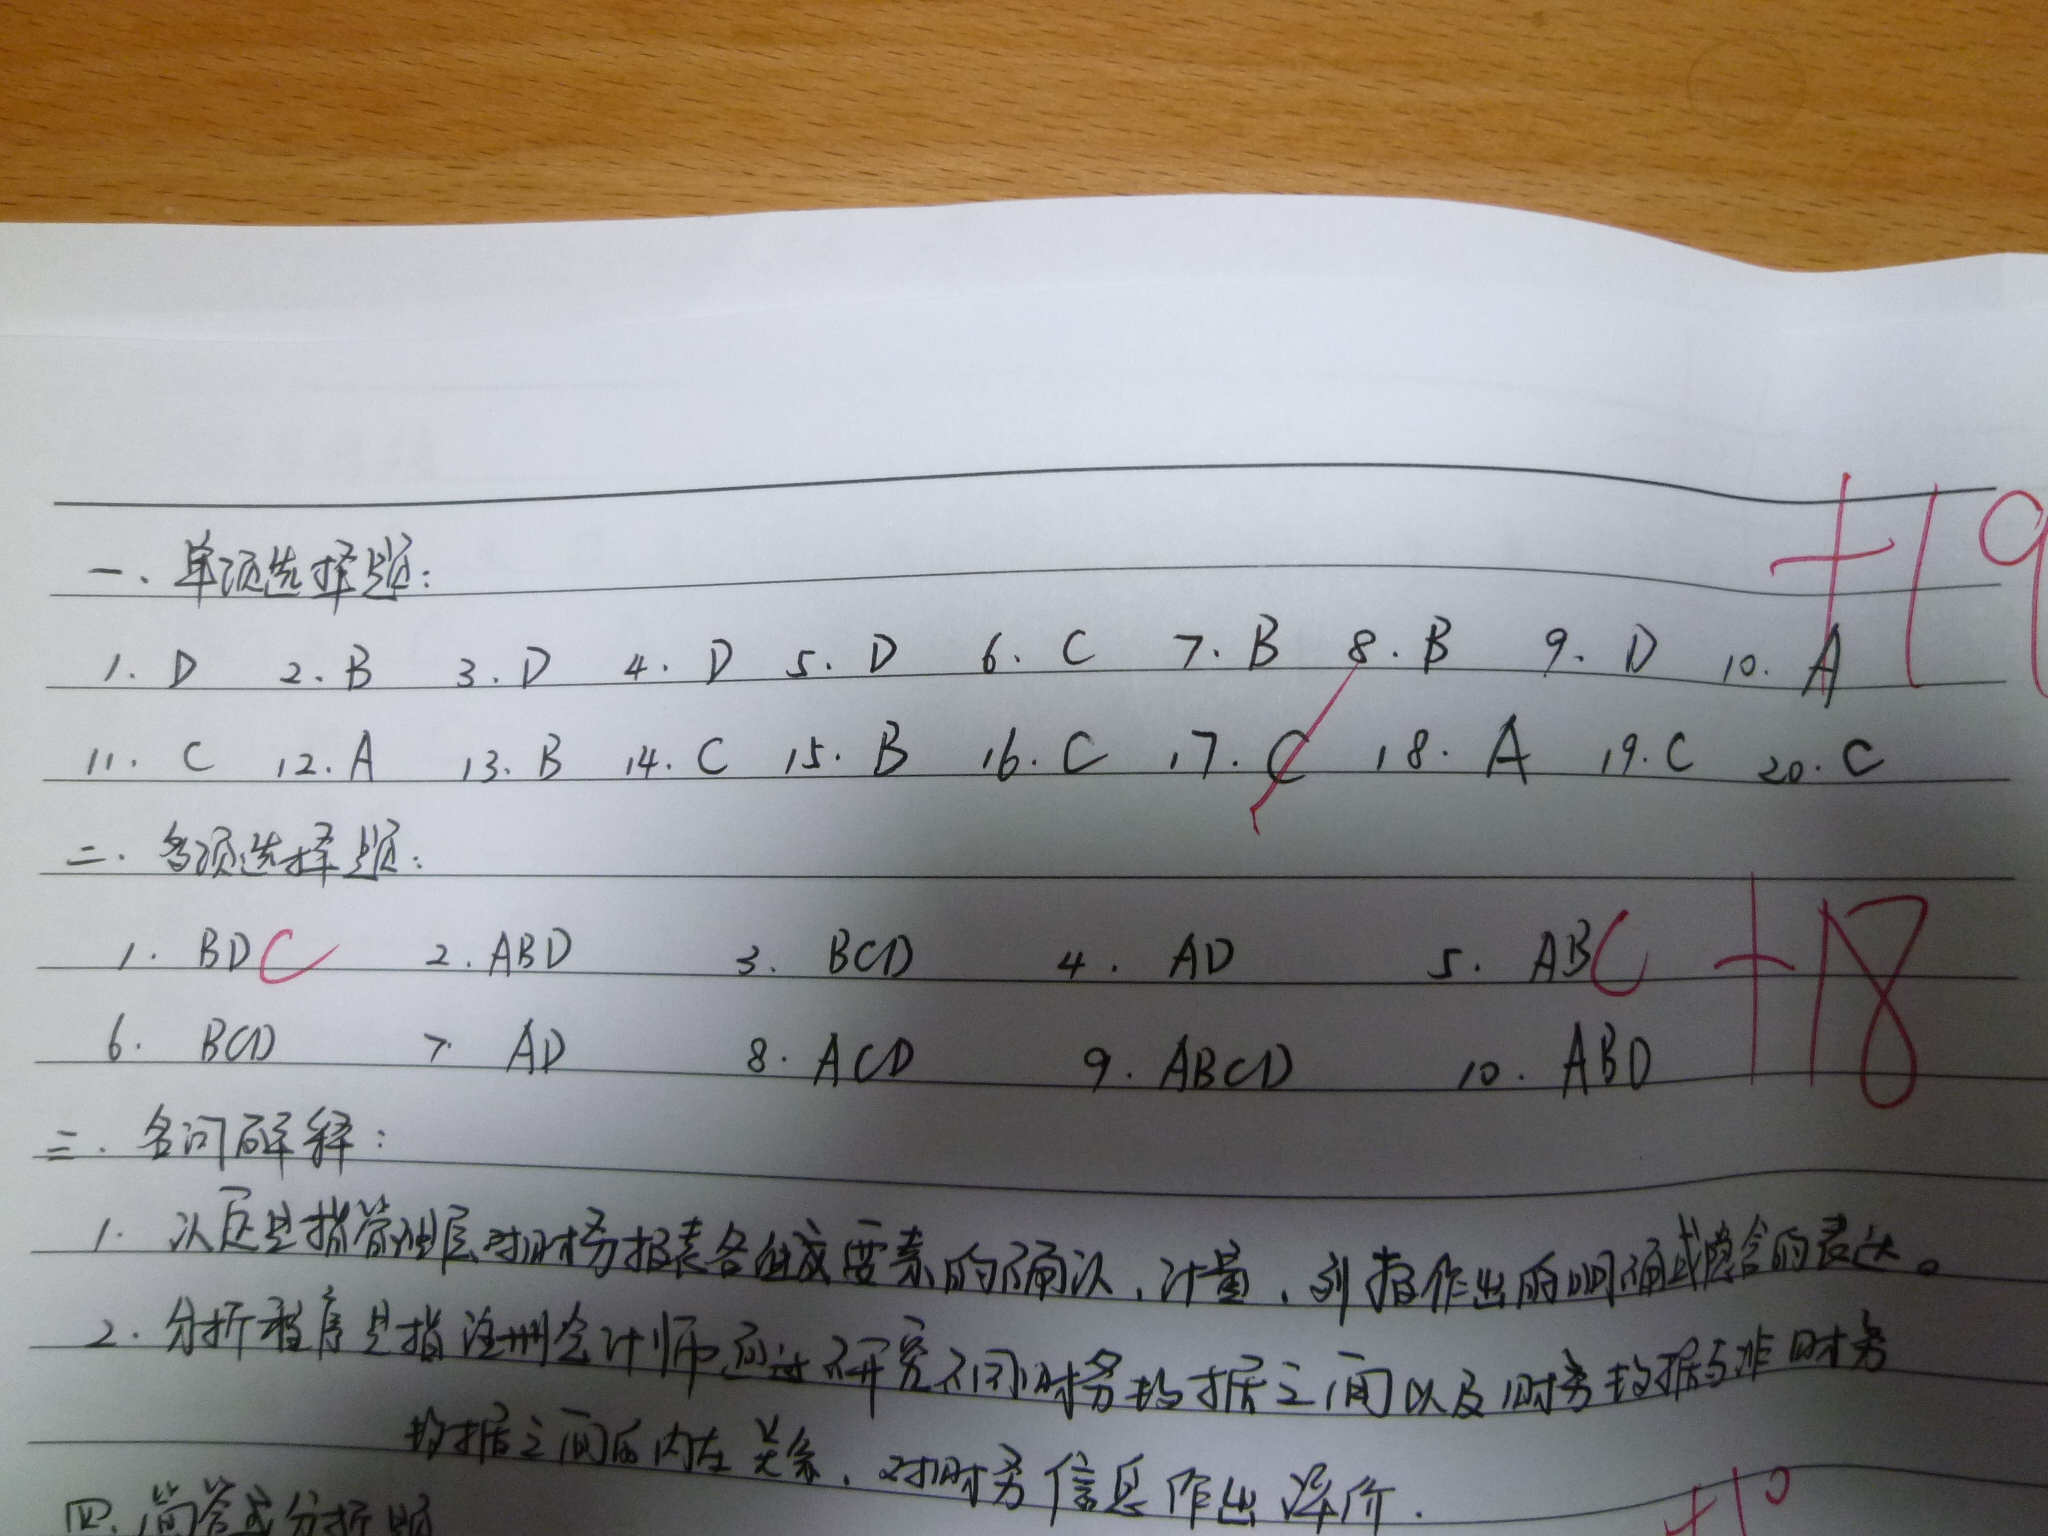 一、单项选择题：
+19
1. D 2. B 3. D 4. D 5. D 6. C 7. B 8. B 9. D 10. A
11. C 12. A 13. B 14. C 15. B 16. C 17. C 18. A 19. C 20. C
二、多项选择题：
1. BDC 2. ABD 3. BCD 4. AD 5. ABC
+18
6. BCD 7. AD 8. ACD 9. ABCD 10. ABD
三、名词解释：
1. 认定是指管理层对财务报表各组成要素的确认、计量、列报作出的明确或隐含的表达。
2. 分析程序是指注册会计师通过研究不同财务数据之间以及财务数据与非财务
数据之间的内在关系，对财务信息作出评价．
+10
四、简答或分析题